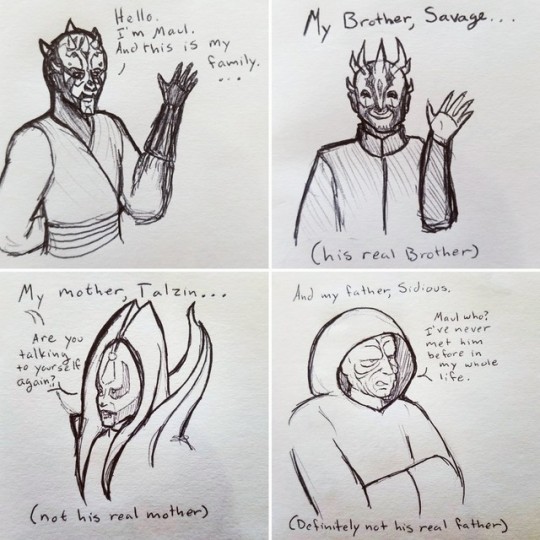 Hello.
I'm Maul.
And this is my
family.
...
My Brother, Savage...
(his real Brother)
My mother, Talzin...
Are you
talking
to yourself
again?
(not his real mother)
And my father, Sidious.
Maul who?
I've never
met him
before in
my whole
life.
(Definitely not his real father)